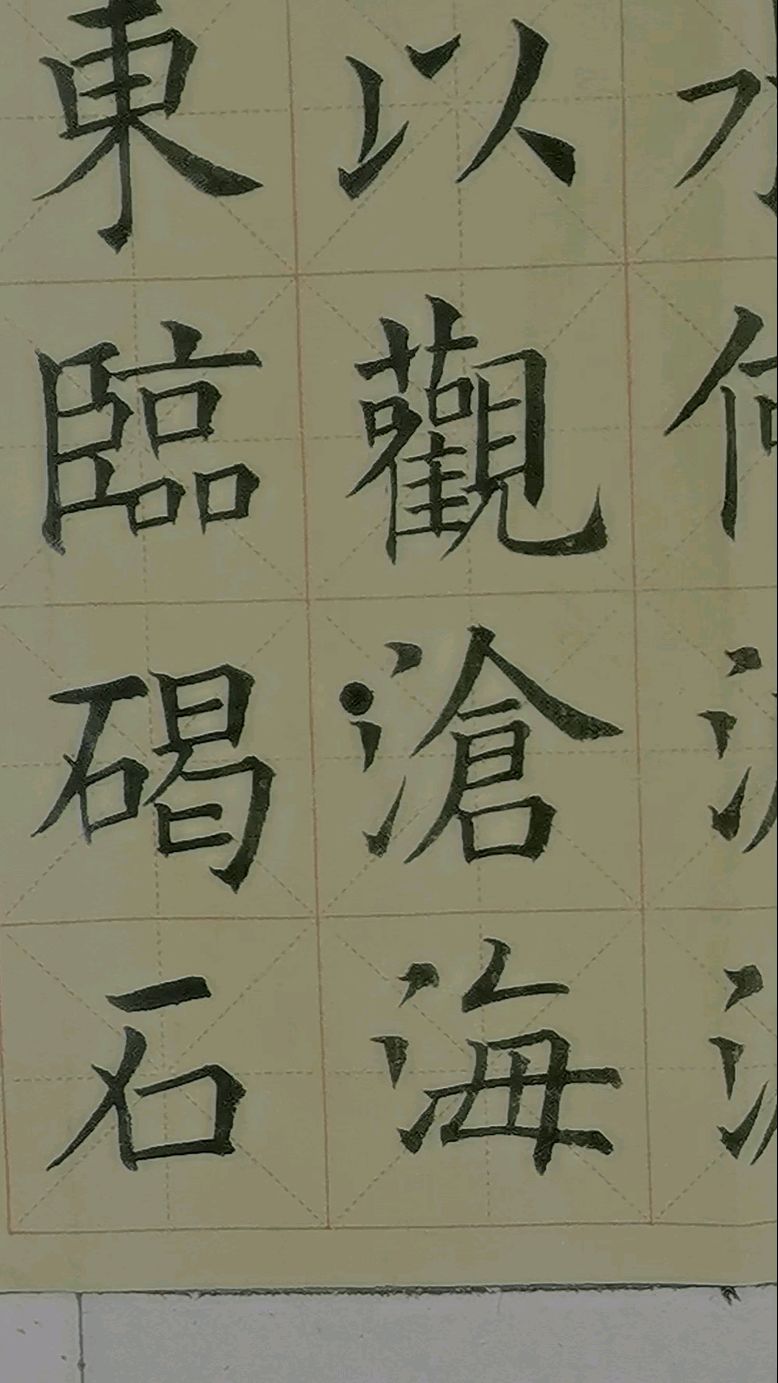 東臨碣石
以觀滄海